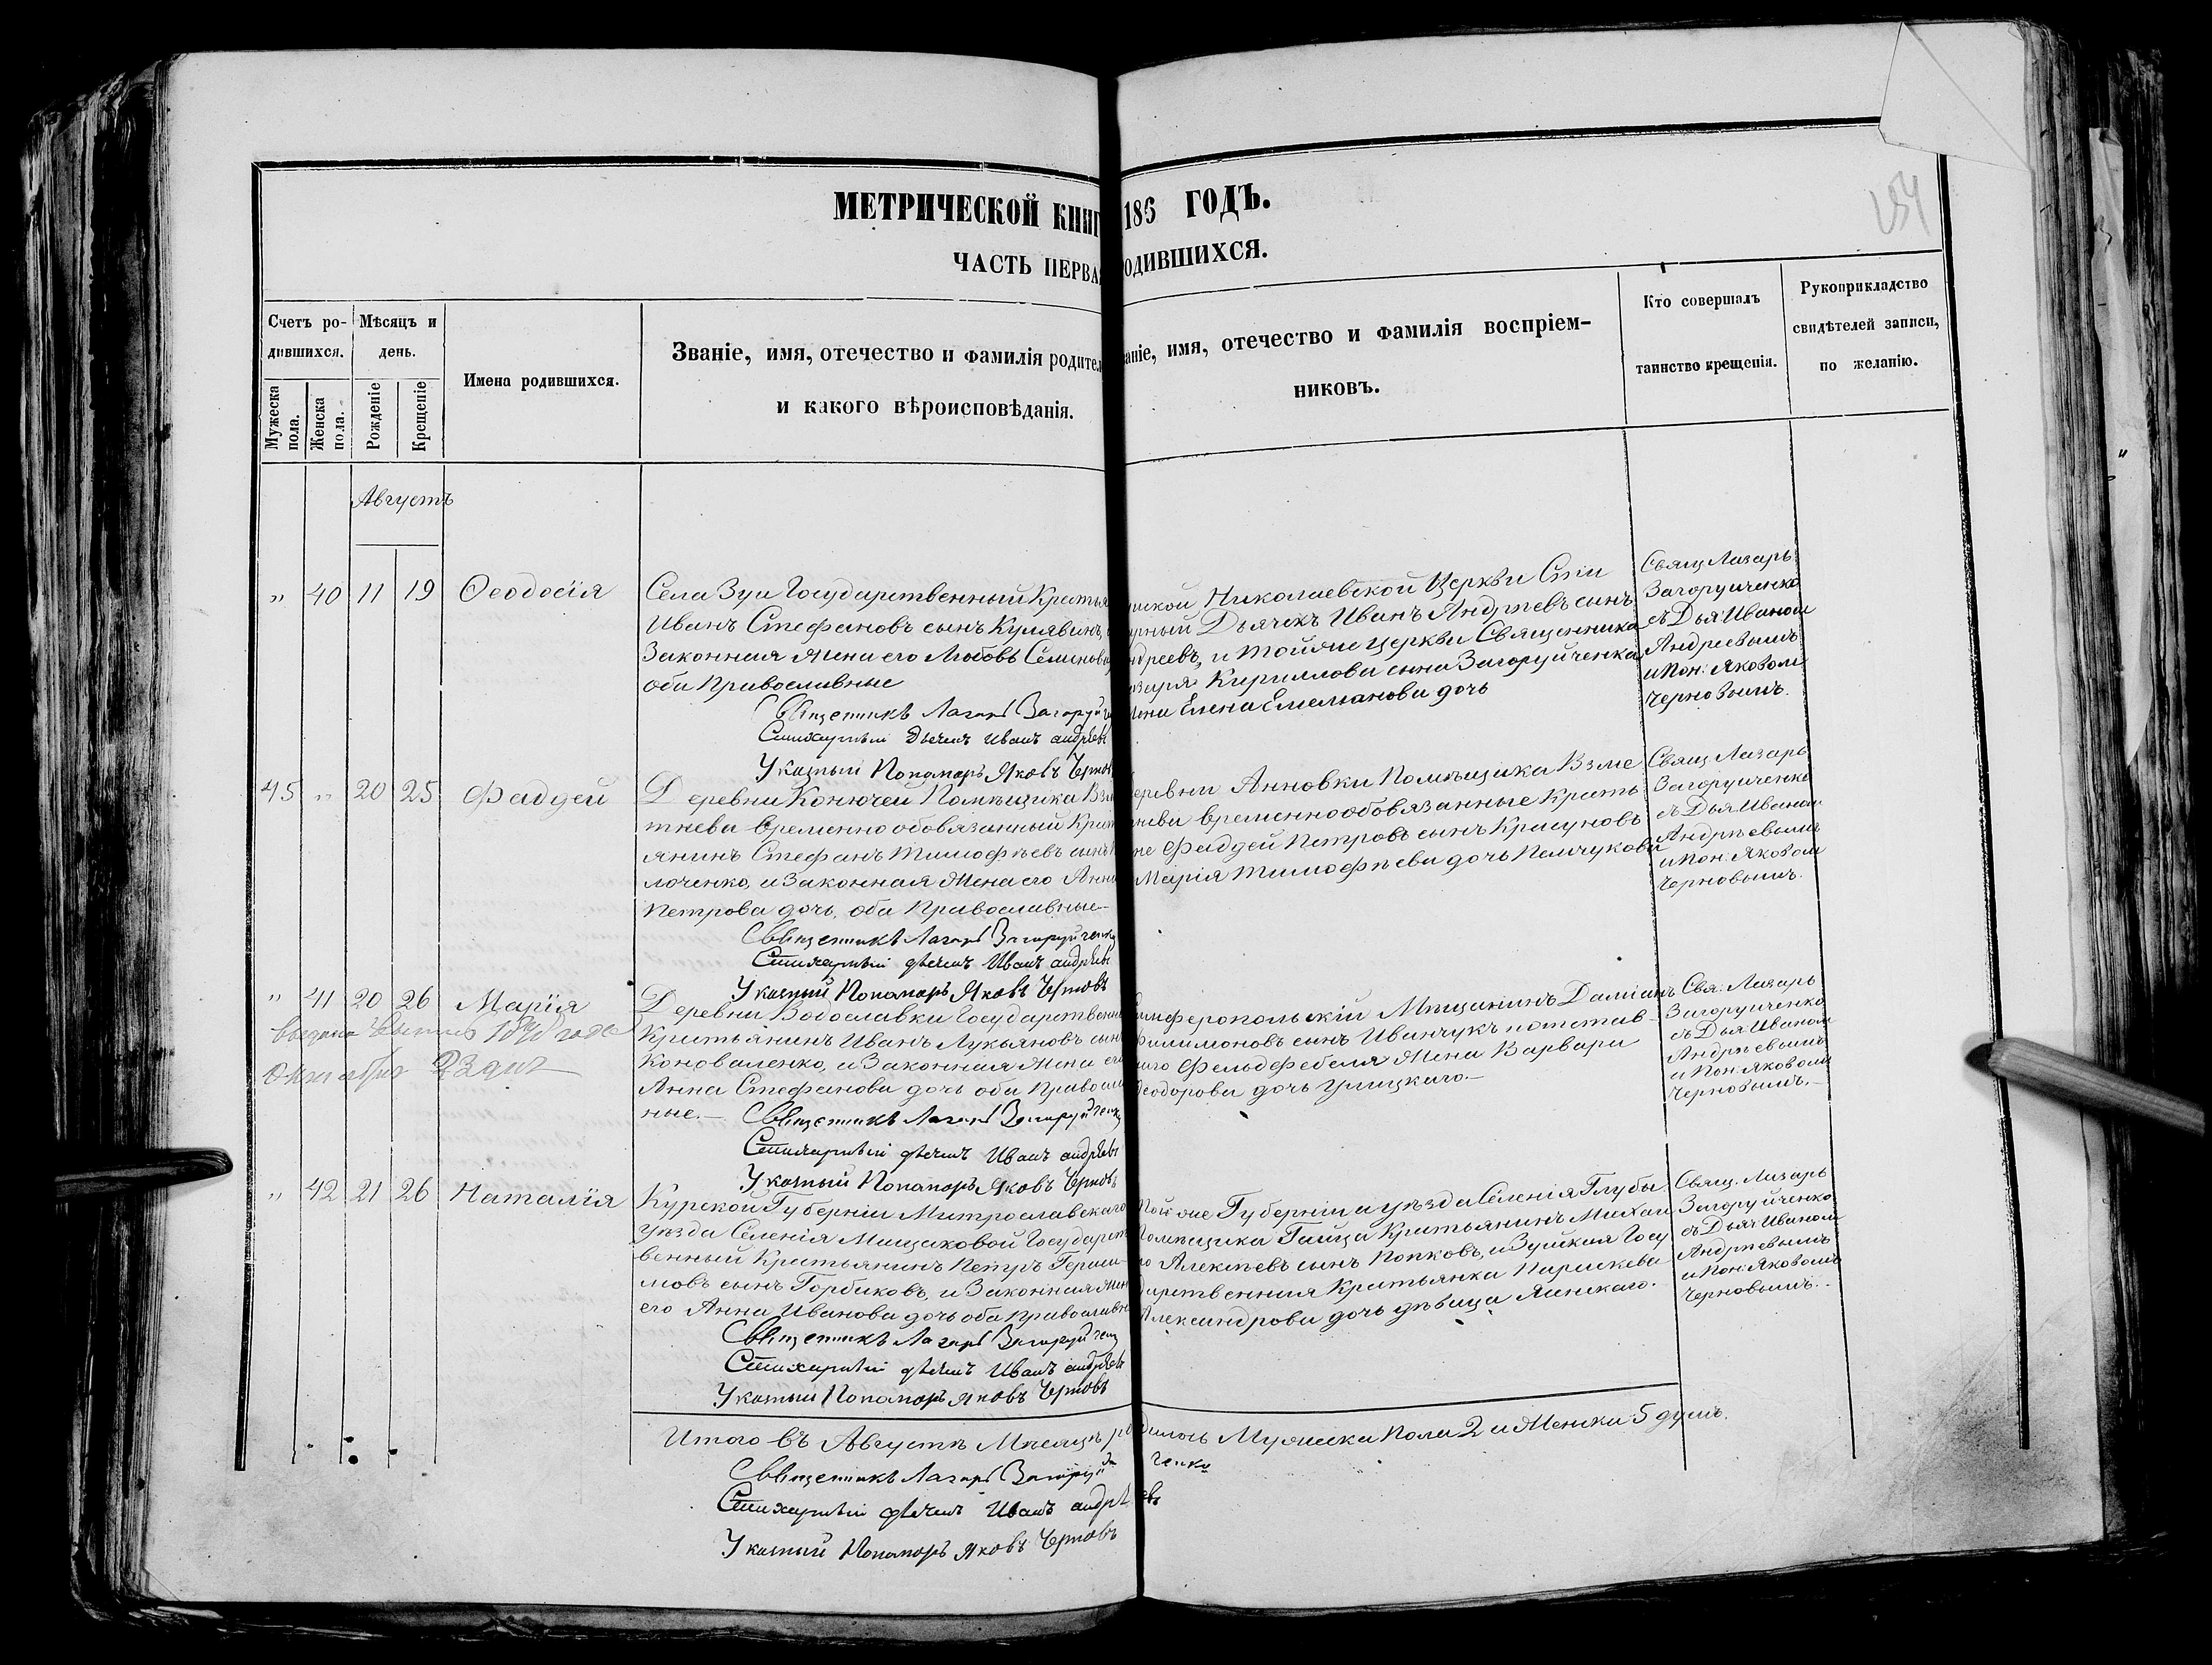 МЕТРИЧЕСКОЙ КНИГ 186 ГОДЪ.
ЧАСТЬ ПЕРВА ОДИВШИХСЯ.
Счетъ ро-
дившихся.
Мужеска пола.
Женска пола.
Мѣсяцъ и
день.
Рожденіе
Крещеніе
Имена родившихся.
Званіе, имя, отечество и фамилія родител
и какого вѣроисповѣданія.
ваніе, имя, отечество и фамилія воспріем-
никовъ.
Кто совершалъ
таинство крещенія.
Рукоприкладство
свидѣтелей записи,
по желанію.
Августъ
" 40 11 19 Ѳеодосія
Села Зуи Государственный Крестья
Иванъ Стефановъ сынъ Кулявинъ,
Законная Жена его Любовь Семенова
оба Православные
Священникъ Лазарь Загоруйче
Стихарный Дьячекъ Иванъ андрѣевъ
Указный Пономарь Яковъ Чернов
Николаевской Церкви Сти
арный Дьячекъ Иванъ Андреевъ сынъ
ндреевъ, и тойже церкви Священника
азаря Кириллова сына Загоруйченка
жена Елена Емельянова дочь
Свящ Лазарь
Загоруйченко
съ Дья Иваном
Андреевымъ
и Пон: Яковом
Черновымъ.
45 " 20 25 Фаддей
Деревни Конючей Помѣщика Взм
тнева временнообовязанный Крест
янинъ Стефанъ Тимофѣевъ сынъ
лоченко, и Законная Жена его Анна
Петрова дочь, оба Православные
Священникъ Лазарь Загоруйченко
Стихарный дьячекъ Иванъ андрѣевъ
Указный Пономарь Яковъ Черновъ
еревни Анновки Помѣщика Взме
тнева временнообовязанные Кресть
не Фаддей Петровъ сынъ Красуновъ
Марія Тимофѣева дочь Пемчукова
Свящ Лазарь
Загоруйченко
съ Дья Иваном
Андрѣевымъ
и Пон: Яковом
Черновымъ.
" 41 20 26 Марія
1891 года
Октября 23 дня
Деревни Водославки Государственны
Крестьянинъ Иванъ Лукьяновъ сынъ
Коноваленко, и Законная Жена его
Анна Стефанова дочь оба Правосла
ные.
Священникъ Лазарь Загоруйченко
Стихарный дьячекъ Иванъ андрѣевъ
Указный Пономарь Яковъ Черновъ
имферопольскій Мѣщанинъ Даміанъ
Филимоновъ сынъ Иванчукъ и отстав-
наго Фельдфебеля Жена Варвара
Ѳеодорова дочь Улицкаго.
Свя: Лазарь
Загоруйченко
съ Дья Иваном
Андрѣевымъ
и Пон: Яковом
Черновымъ.
" 42 21 26 Наталія
Курской Губерніи Митрославскаго
уѣзда Селенія Мищаковой Государст
венный Крестьянинъ Петръ Гераси
мовъ сынъ Горбиковъ, и Законная Жен
его Анна Иванова дочь оба Православн
Священникъ Лазарь Загоруйченко
Стихарный дьячекъ Иванъ андрѣевъ
Указный Пономарь Яковъ Черновъ
Той же Губерніи и уѣзда Селенія Глубы
Помѣщика Гайца Крестьянинъ Михаи
ло Алексѣевъ сынъ Попковъ, и Зуйская Госу
дарственная Крестьянка Параскева
Александрова дочь дѣвица Яинскаго.
Свящ. Лазарь
Загоруйченко
съ Дьяч Иваном
Андрѣевымъ
и Пон: Яковомъ
Черновымъ.
Итого въ Августѣ Мѣсяцѣ родилось Мужеска Пола 2 и Женска 5 душъ.
Священникъ Лазарь Загоруйченко
Стихарный дьячекъ Иванъ андрѣевъ
Указный Пономарь Яковъ Черновъ